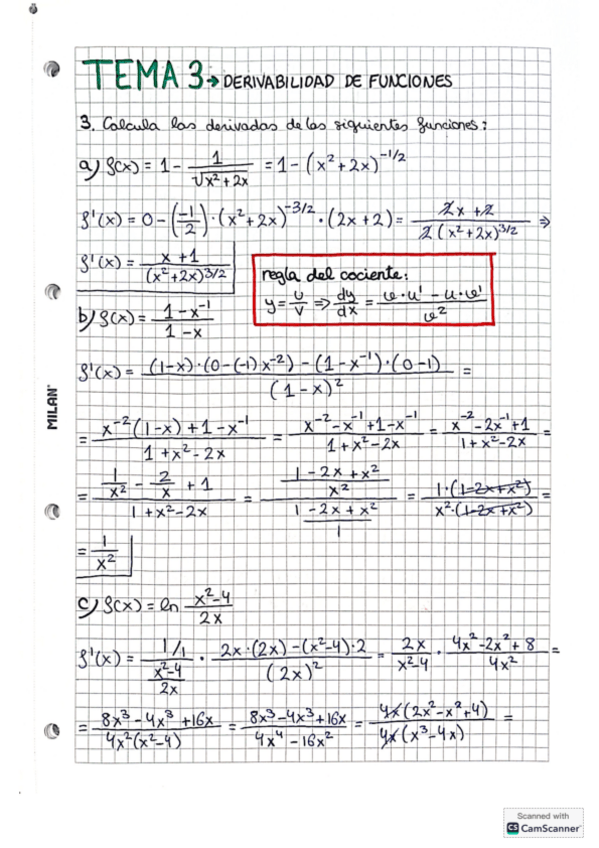 TEMA 3 → DERIVABILIDAD DE FUNCIONES
3. Calcula las derivadas de las siguientes funciones:
a) f(x) = 1 - 1/√(x²+2x) = 1 - (x²+2x)^(-1/2)
f'(x) = 0 - (-1/2) · (x²+2x)^(-3/2) · (2x+2) = (2x+2)/(2(x²+2x)^(3/2)) ⇒
f'(x) = (x+1)/((x²+2x)^(3/2))
regla del cociente:
y = u/v ⇒ dy/dx = (v·u' - u·v')/v²
b) f(x) = (1-x⁻¹)/(1-x)
f'(x) = ((1-x)·(0-(-1)x⁻²) - (1-x⁻¹)·(0-1))/((1-x)²) =
= (x⁻²(1-x)+1-x⁻¹)/(1+x²-2x) = (x⁻²-x⁻¹+1-x⁻¹)/(1+x²-2x) = (x⁻²-2x⁻¹+1)/(1+x²-2x) =
= (1/x² - 2/x + 1)/(1+x²-2x) = ((1-2x+x²)/x²)/((1-2x+x²)/1) = (1·(1-2x+x²))/(x²·(1-2x+x²)) =
= 1/x²
c) f(x) = ln (x²-4)/(2x)
f'(x) = (1/1)/((x²-4)/(2x)) · (2x·(2x)-(x²-4)·2)/((2x)²) = 2x/(x²-4) · (4x²-2x²+8)/(4x²) =
= (8x³-4x³+16x)/(4x²(x²-4)) = (8x³-4x³+16x)/(4x⁴-16x²) = (4x(2x²-x²+4))/(4x(x³-4x)) =
MILAN
Scanned with
CS CamScanner